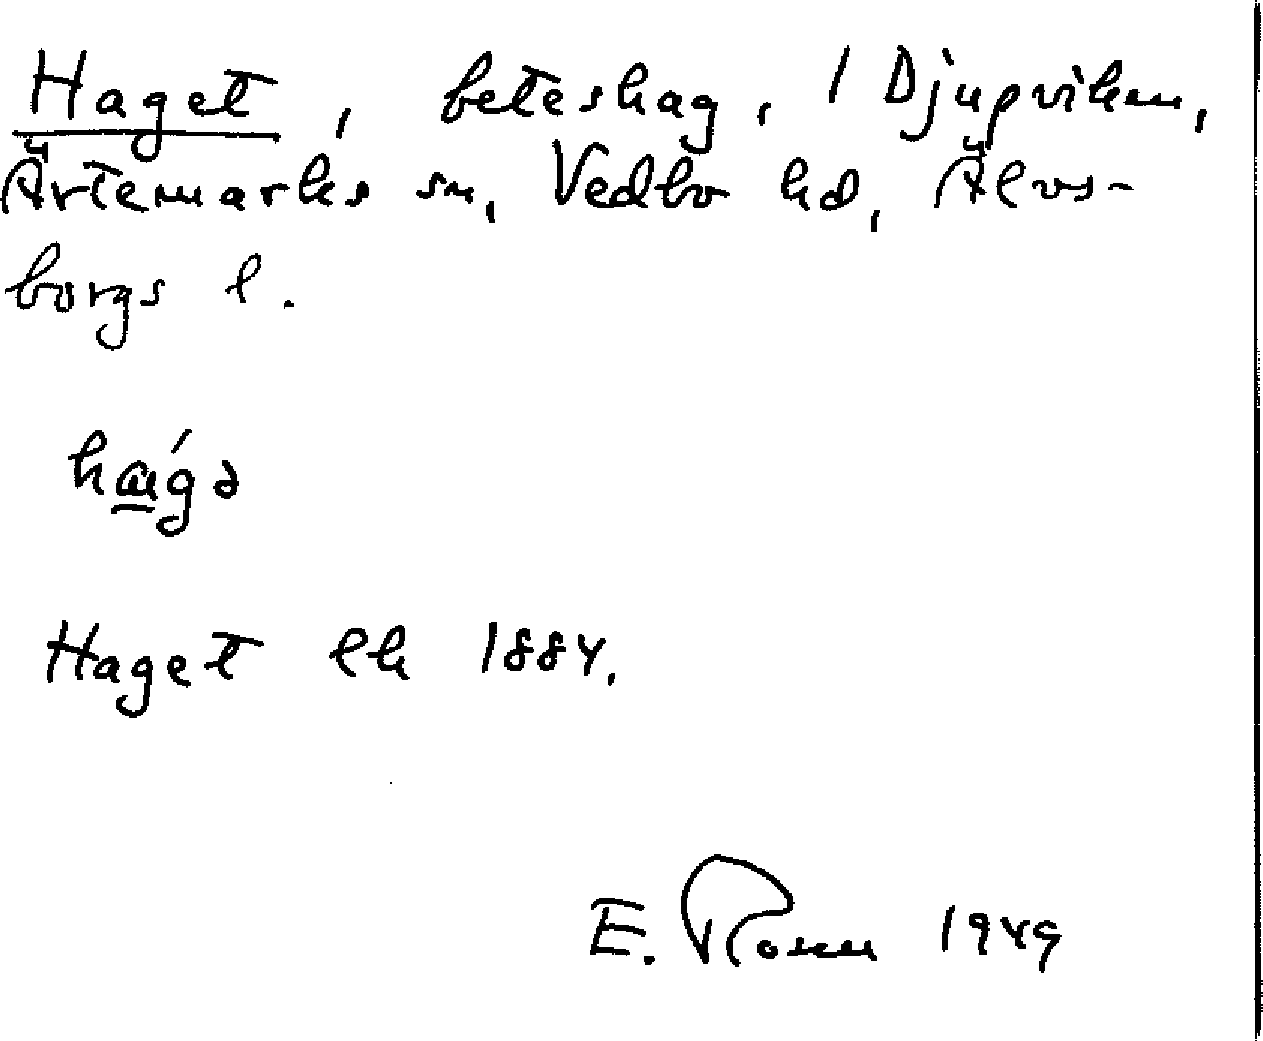 Haget, beteshag, 1 Djupviken,
Ärtemarks sn, Vedbo hd, Älvs-
borgs l.
Haget lk 1884.
E. Rosen 1949